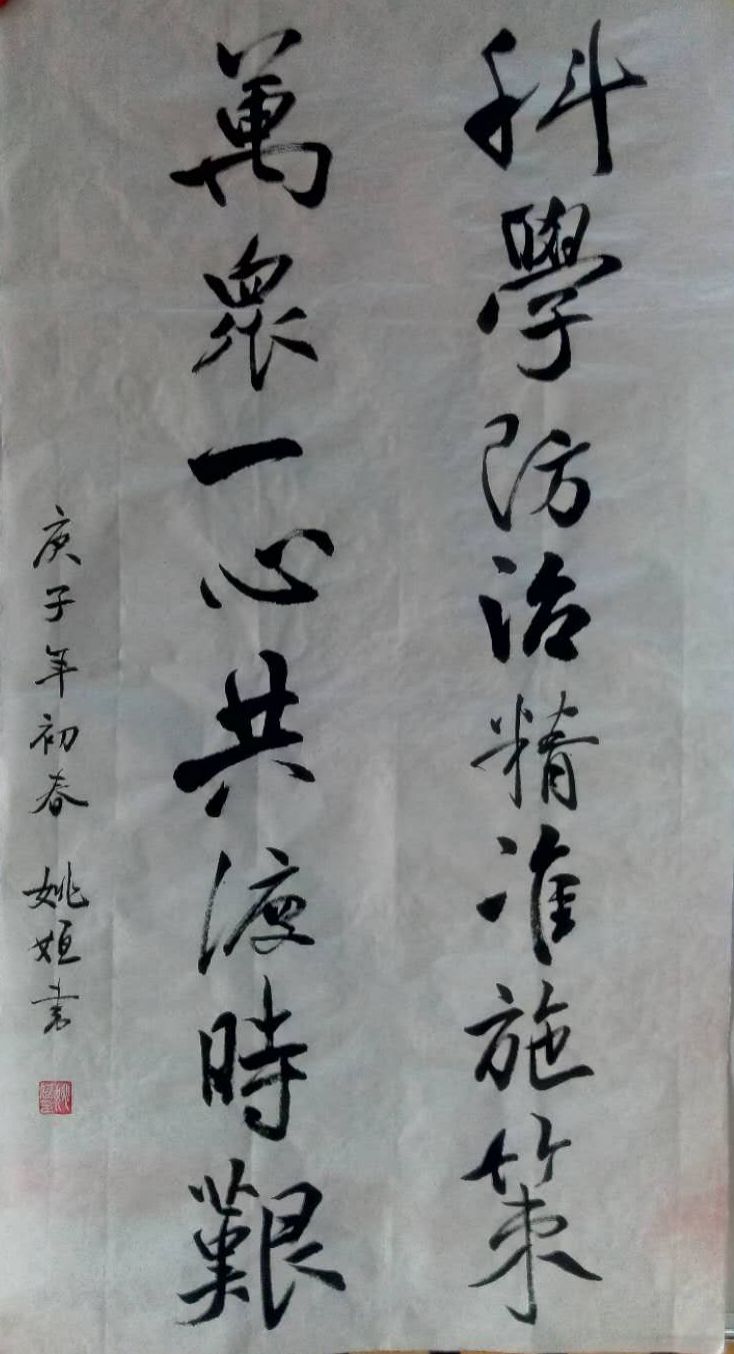 科學防治精准施策
萬眾一心共渡時艱
庚子年初春 姚姮书